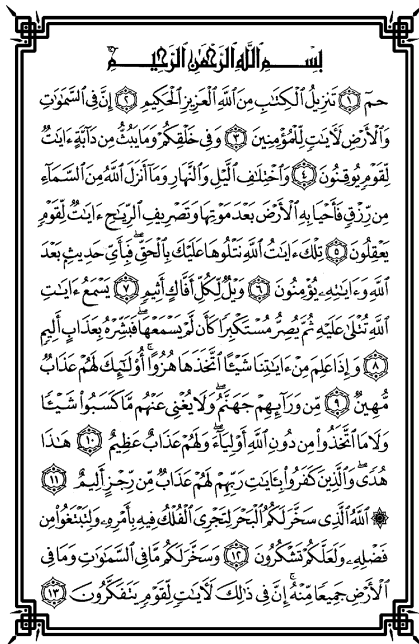 بِسْمِ اللَّهِ الرَّحْمَٰنِ الرَّحِيمِ
حمٓ ١ تَنزِيلُ الْكِتَابِ مِنَ اللَّهِ الْعَزِيزِ الْحَكِيمِ ٢ إِنَّ فِي السَّمَاوَاتِ
وَالْأَرْضِ لَآيَاتٍ لِّلْمُؤْمِنِينَ ٣ وَفِي خَلْقِكُمْ وَمَا يَبُثُّ مِن دَابَّةٍ ءَايَاتٌ
لِّقَوْمٍ يُوقِنُونَ ٤ وَاخْتِلَافِ اللَّيْلِ وَالنَّهَارِ وَمَا أَنزَلَ اللَّهُ مِنَ السَّمَاءِ
مِن رِّزْقٍ فَأَحْيَا بِهِ الْأَرْضَ بَعْدَ مَوْتِهَا وَتَصْرِيفِ الرِّيَاحِ ءَايَاتٌ لِّقَوْمٍ
يَعْقِلُونَ ٥ تِلْكَ ءَايَاتُ اللَّهِ نَتْلُوهَا عَلَيْكَ بِالْحَقِّ ۖ فَبِأَيِّ حَدِيثٍ بَعْدَ
اللَّهِ وَءَايَاتِهِ يُؤْمِنُونَ ٦ وَيْلٌ لِّكُلِّ أَفَّاكٍ أَثِيمٍ ٧ يَسْمَعُ ءَايَاتِ
اللَّهِ تُتْلَىٰ عَلَيْهِ ثُمَّ يُصِرُّ مُسْتَكْبِرًا كَأَن لَّمْ يَسْمَعْهَا ۖ فَبَشِّرْهُ بِعَذَابٍ أَلِيمٍ
٨ وَإِذَا عَلِمَ مِنْ ءَايَاتِنَا شَيْئًا اتَّخَذَهَا هُزُوًا ۚ أُولَٰئِكَ لَهُمْ عَذَابٌ
مُّهِينٌ ٩ مِّن وَرَائِهِمْ جَهَنَّمُ ۖ وَلَا يُغْنِي عَنْهُم مَّا كَسَبُوا شَيْئًا
وَلَا مَا اتَّخَذُوا مِن دُونِ اللَّهِ أَوْلِيَاءَ ۖ وَلَهُمْ عَذَابٌ عَظِيمٌ ١٠ هَٰذَا
هُدًى ۖ وَالَّذِينَ كَفَرُوا بِـَٔايَاتِ رَبِّهِمْ لَهُمْ عَذَابٌ مِّن رِّجْزٍ أَلِيمٌ ١١
۞ اللَّهُ الَّذِي سَخَّرَ لَكُمُ الْبَحْرَ لِتَجْرِيَ الْفُلْكُ فِيهِ بِأَمْرِهِ وَلِتَبْتَغُوا مِن
فَضْلِهِ وَلَعَلَّكُمْ تَشْكُرُونَ ١٢ وَسَخَّرَ لَكُم مَّا فِي السَّمَاوَاتِ وَمَا فِي
الْأَرْضِ جَمِيعًا مِّنْهُ ۚ إِنَّ فِي ذَٰلِكَ لَآيَاتٍ لِّقَوْمٍ يَتَفَكَّرُونَ ١٣